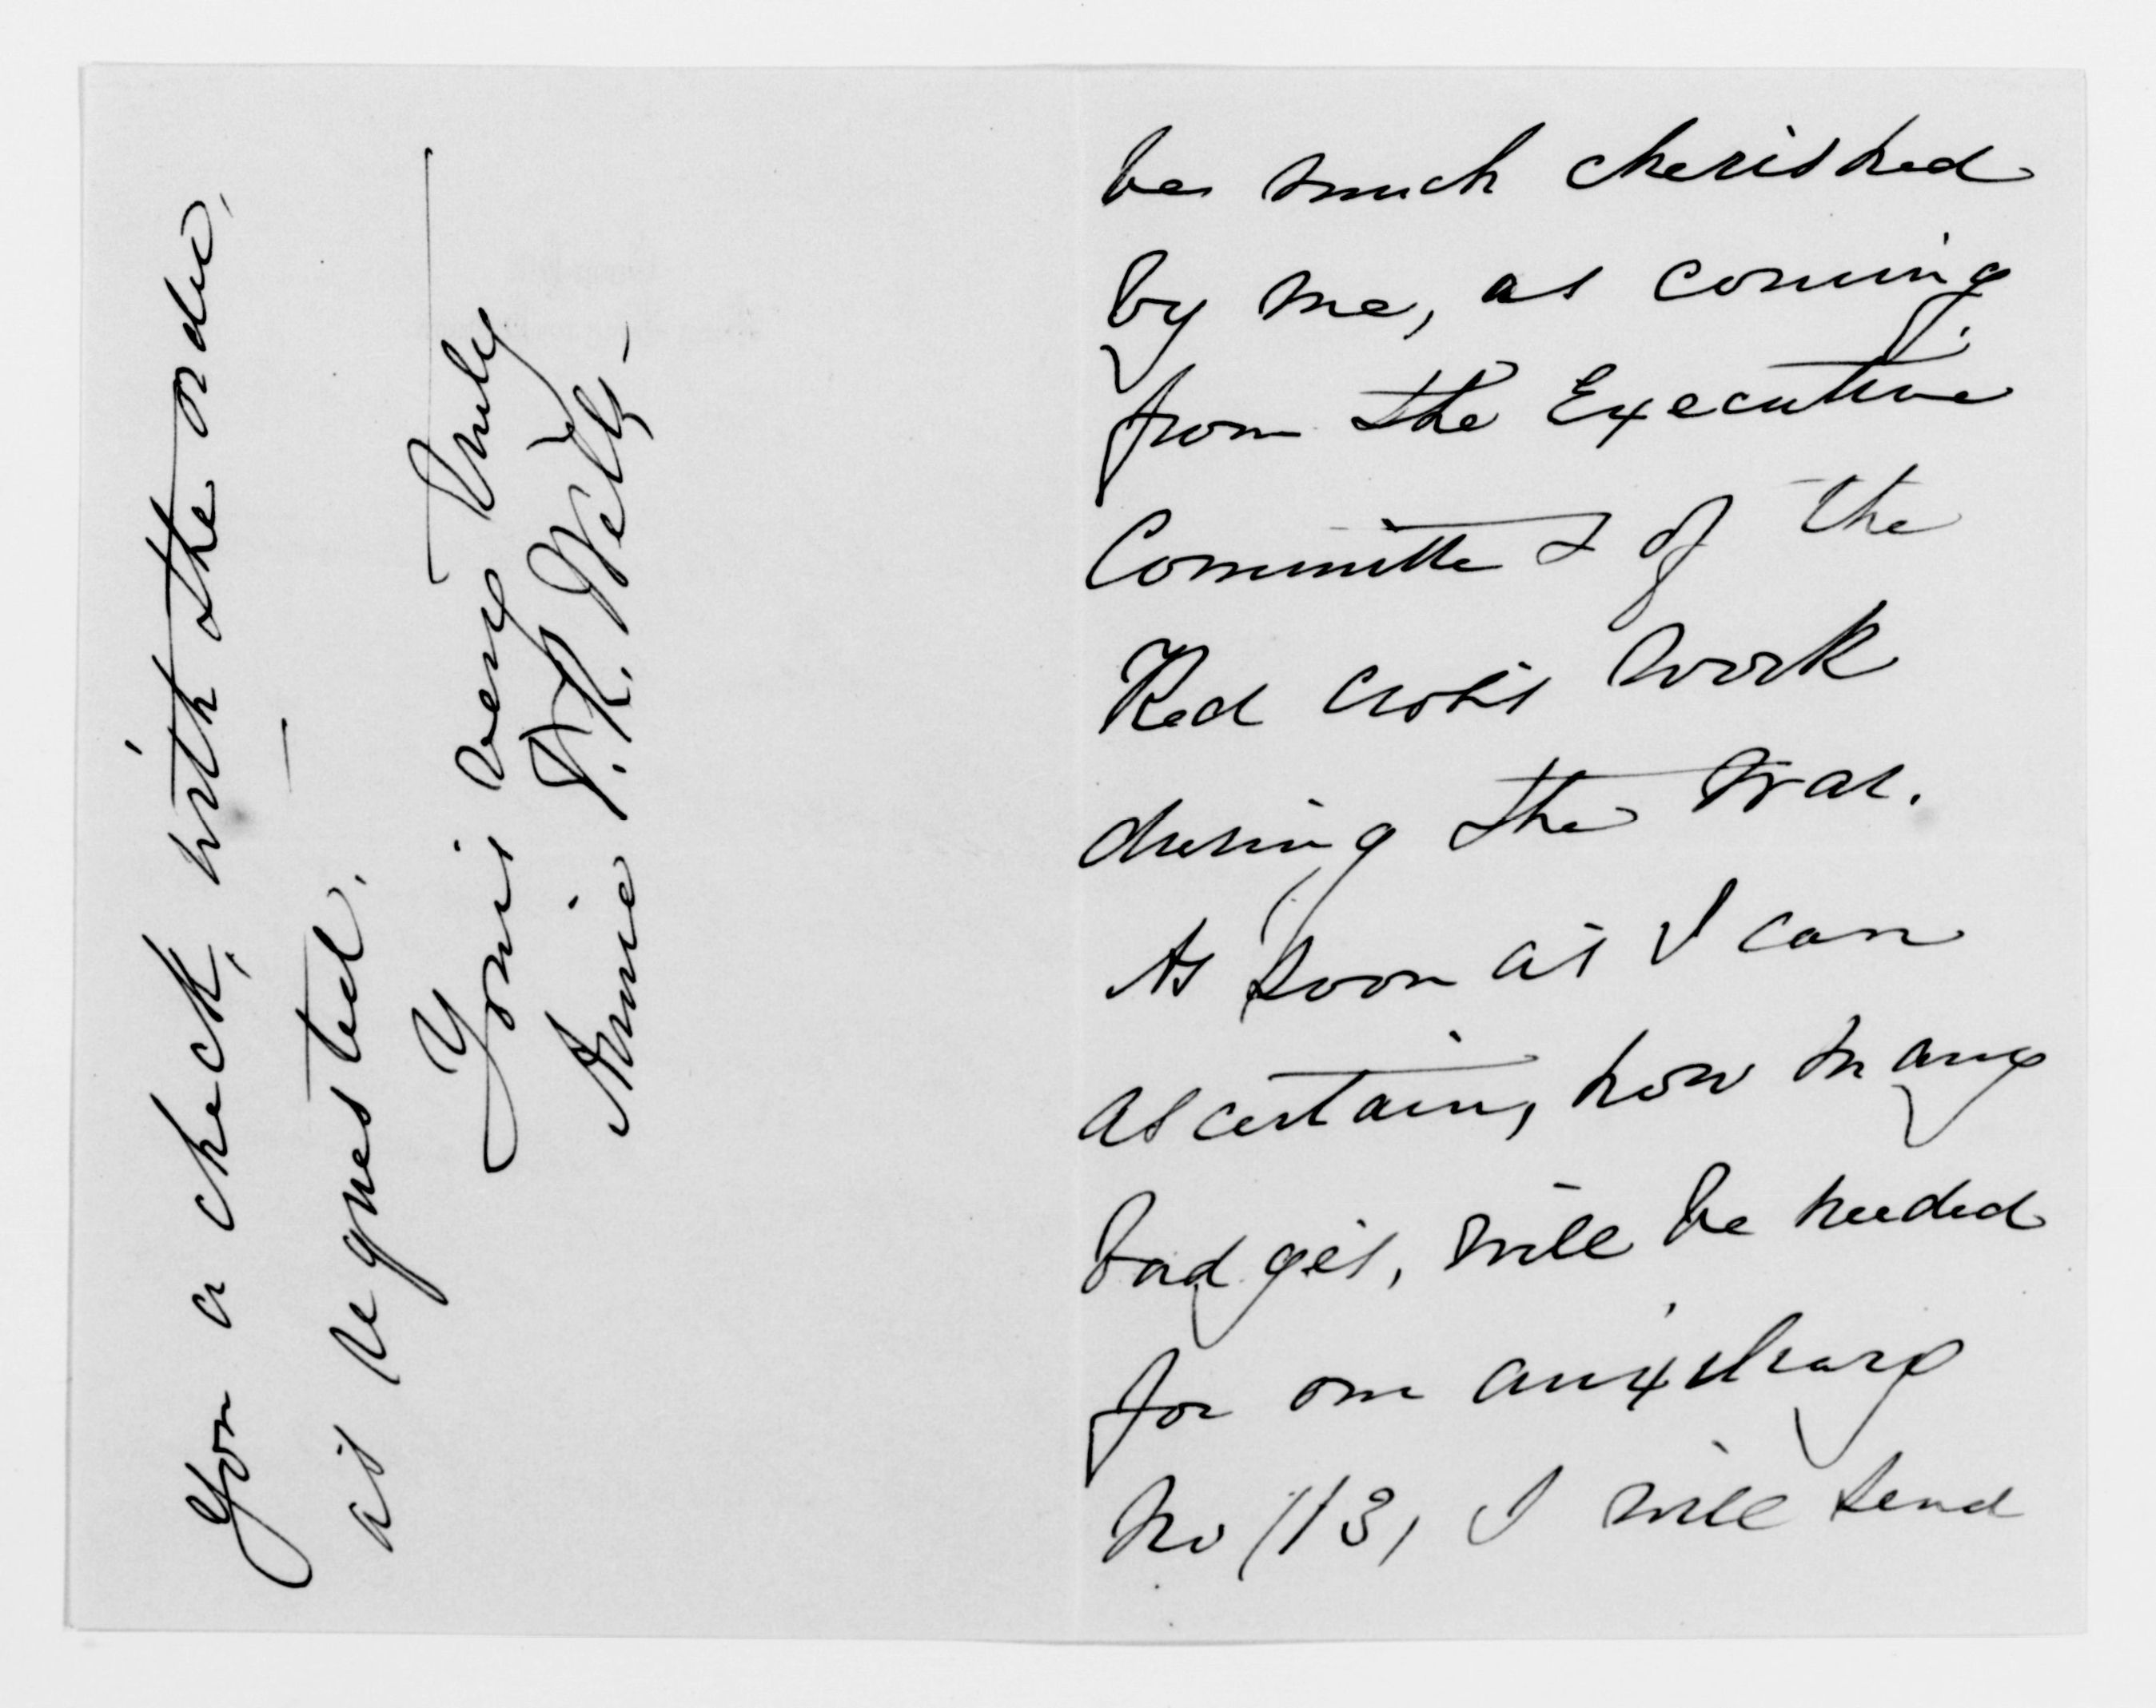 be much cherished
by me, as coming
from the Executive
Committee of the
Red Cross work
during the War.
As soon as I can
ascertain, how many
badges, will be needed
for our auxilary
No 113, I will send
you a check, with the order,
as requested.
Yours very truly
Annie T. R. Wells